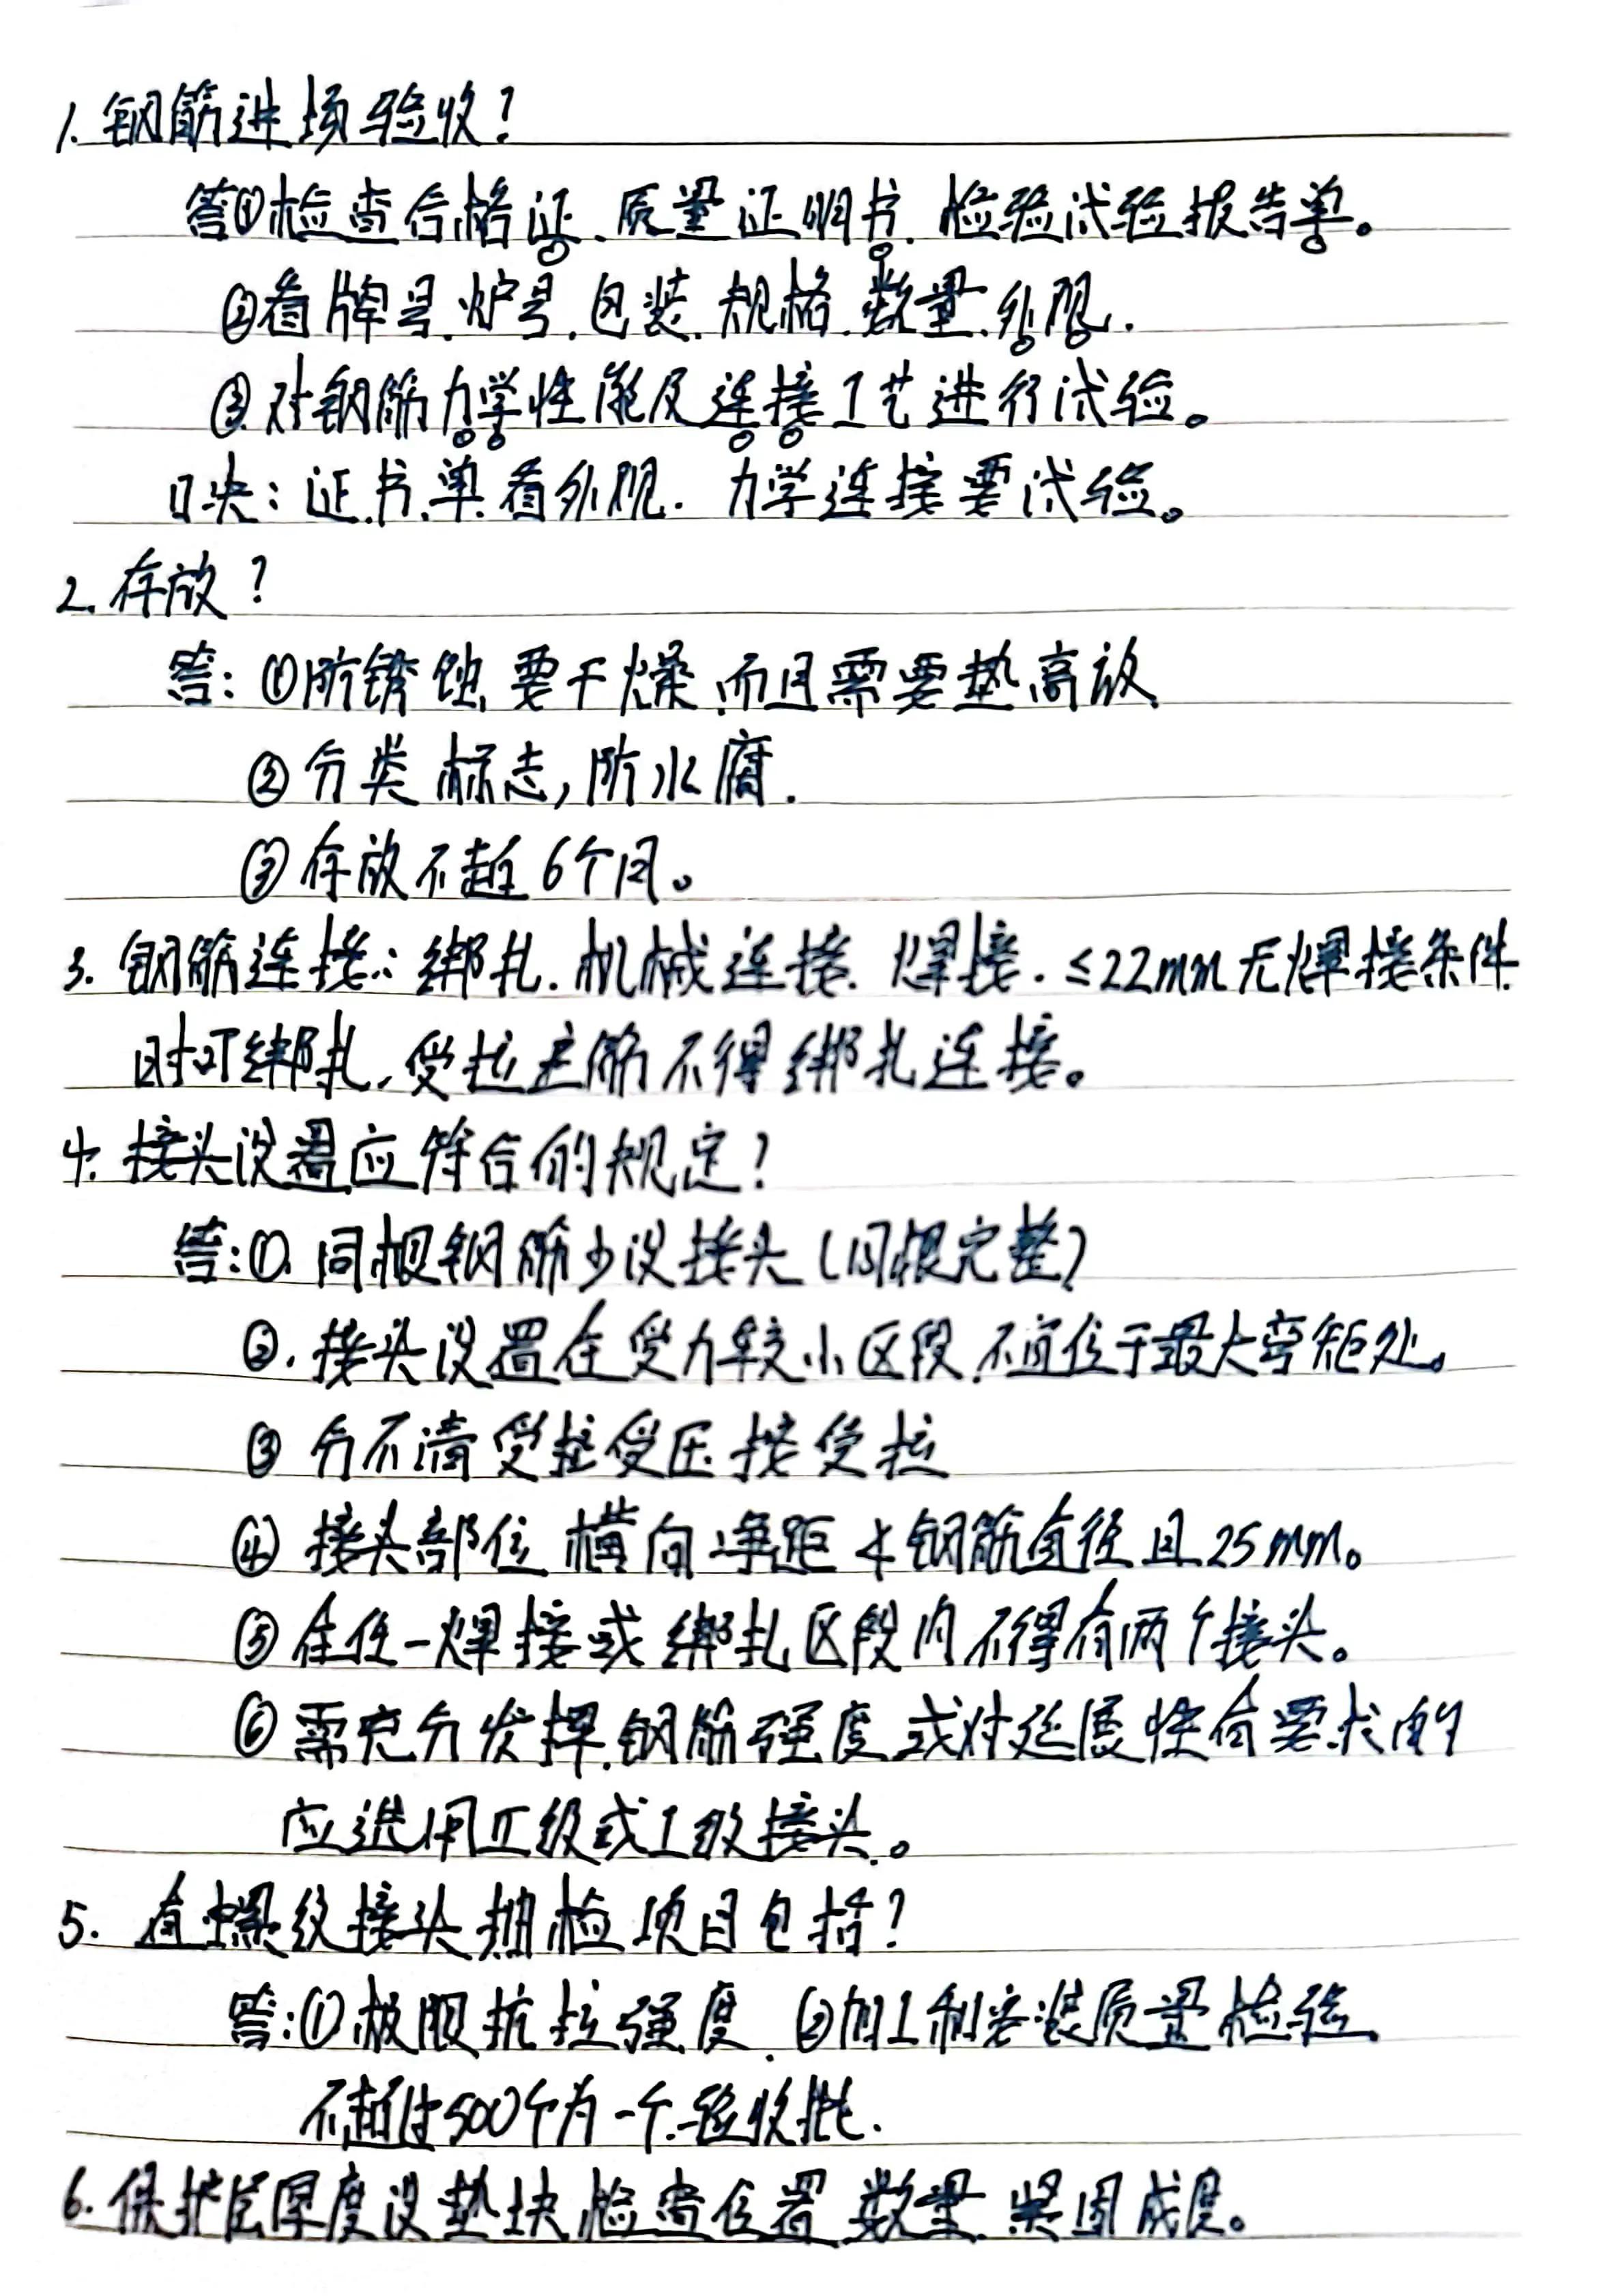 1. 钢筋进场验收?
答①检查合格证、质量证明书、检验试验报告单。
②看牌号、炉号、包装、规格、数量、外观.
③对钢筋力学性能及连接工艺进行试验。
口决:证、书、单、看外观. 力学连接要试验。
2. 存放?
答:①防锈蚀、要干燥、而且需要垫高放、
②分类标志,防水腐.
③存放不超6个月。
3. 钢筋连接:绑扎.机械连接.焊接.≤22mm无焊接条件
时可绑扎,受拉主筋不得绑扎连接。
4. 接头设置应符合的规定?
答:①、同根钢筋少设接头(同根完整)
②、接头设置在受力较小区段,不宜位于最大弯矩处。
③ 分不清受拉受压按受拉
④ 接头部位横向净距≮钢筋直径且25mm。
⑤ 在任一焊接或绑扎区段内不得有两个接头。
⑥ 需充分发挥钢筋强度或对延展性有要求的
应选用Ⅱ级或Ⅰ级接头。
5. 直螺纹接头抽检项目包括?
答:①极限抗拉强度、②加工和安装质量检验、
不超过500个为一个验收批.
6. 保护层厚度设垫块,检查位置、数量、紧固成度。